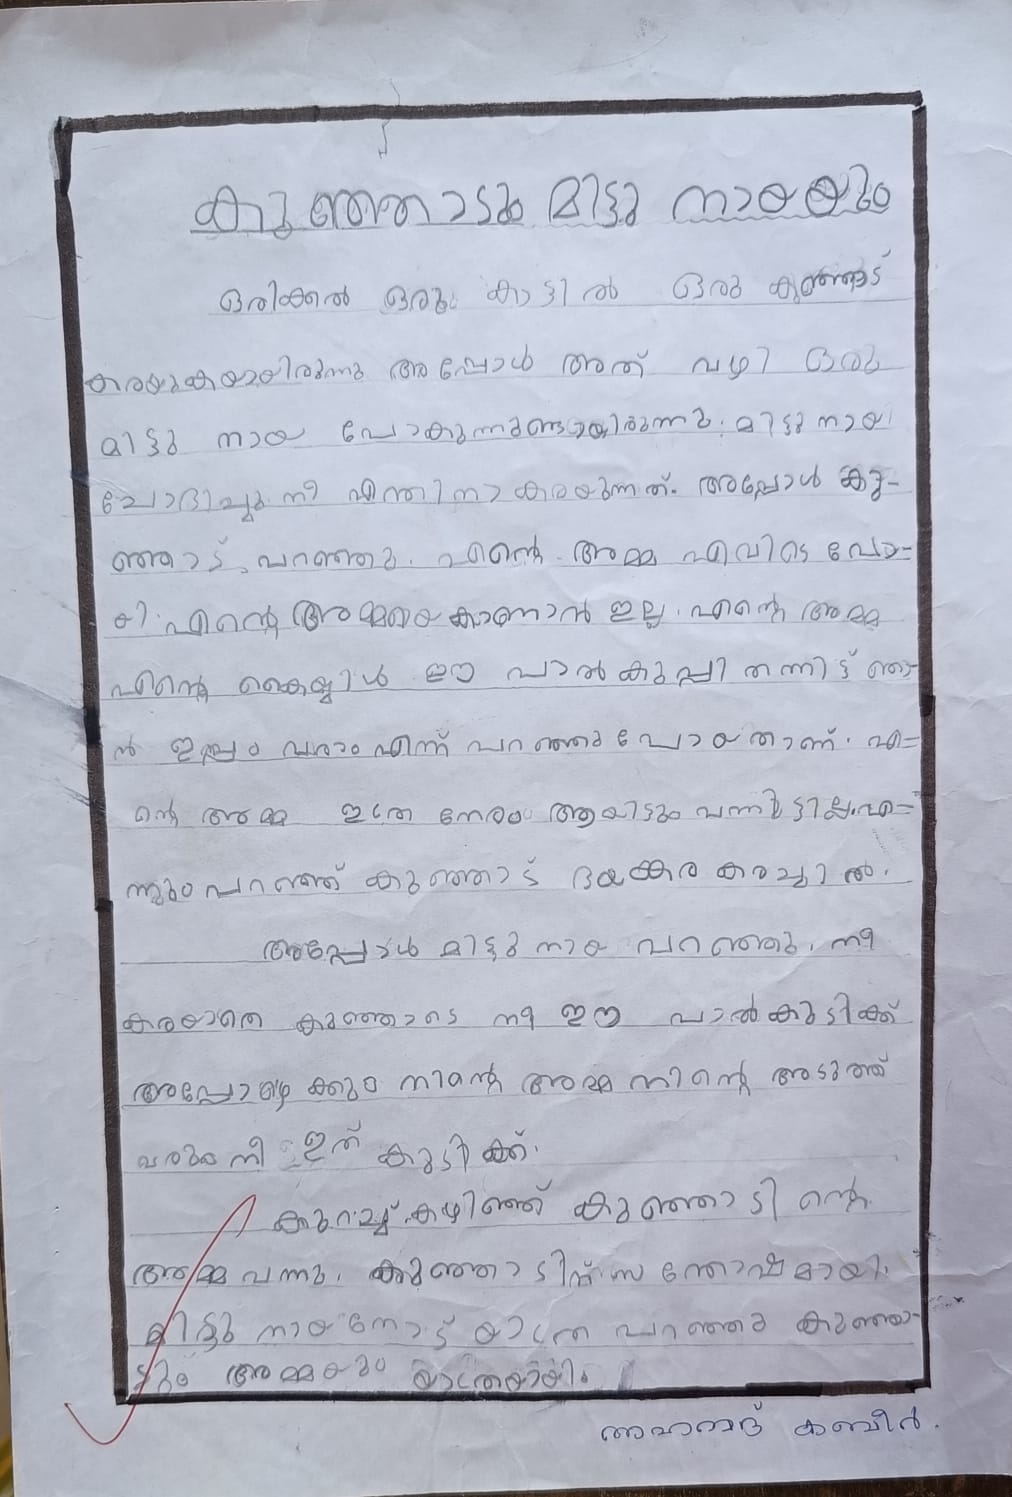 കുഞ്ഞാടും മിട്ടു നായയും
ഒരിക്കൽ ഒരു കാട്ടിൽ ഒരു കുഞ്ഞാട്
കരയുകയായിരുന്നു അപ്പോൾ അത് വഴി ഒരു
മിട്ടു നായ പോകുന്നുണ്ടായിരുന്നു. മിട്ടു നായ
ചോദിച്ചു നീ എന്തിനാ കരയുന്നത്. അപ്പോൾ കു-
ഞ്ഞാട് പറഞ്ഞു. എന്റെ അമ്മ എവിടെ പോ-
യി. എന്റെ അമ്മയെ കാണാൻ ഇല്ല. എന്റെ അമ്മ
എന്റെ കൈയ്യിൽ ഈ പാൽ കുപ്പി തന്നിട്ട് ഞാ-
ൻ ഇപ്പം വരാം എന്ന് പറഞ്ഞു പോയതാണ്. എ-
ന്റെ അമ്മ ഇത്ര നേരം ആയിട്ടും വന്നിട്ടില്ല. എ-
ന്നും പറഞ്ഞ് കുഞ്ഞാട് ഭയങ്കര കരച്ചിൽ.
അപ്പോൾ മിട്ടു നായ പറഞ്ഞു. നീ
കരയാതെ കുഞ്ഞാടെ നീ ഈ പാൽ കുടിക്ക്
അപ്പോഴേക്കും നിന്റെ അമ്മ നിന്റെ അടുത്ത്
വരും നീ ഇത് കുടിക്ക്.
കുറച്ച് കഴിഞ്ഞ് കുഞ്ഞാടിന്റെ
അമ്മ വന്നു. കുഞ്ഞാടിന് സന്തോഷമായി.
മിട്ടു നായനോട് യാത്ര പറഞ്ഞു കുഞ്ഞാ-
ടും അമ്മയും യാത്രയായി.
കബീർ.